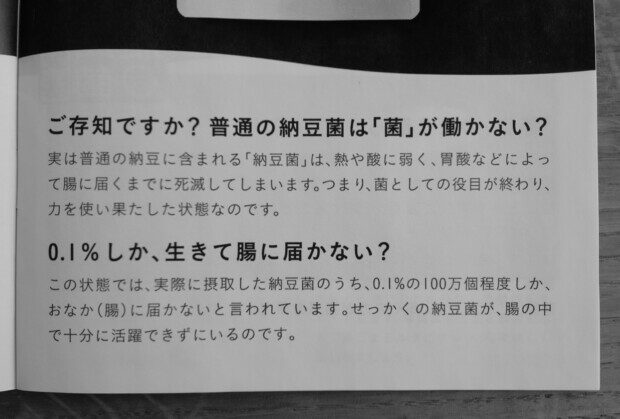 ご存知ですか？ 普通の納豆菌は「菌」が働かない？
実は普通の納豆に含まれる「納豆菌」は、熱や酸に弱く、胃酸などによっ
て腸に届くまでに死滅してしまいます。つまり、菌としての役目が終わり、
力を使い果たした状態なのです。
0.1％しか、生きて腸に届かない？
この状態では、実際に摂取した納豆菌のうち、0.1%の100万個程度しか、
おなか（腸）に届かないと言われています。せっかくの納豆菌が、腸の中
で十分に活躍できずにいるのです。